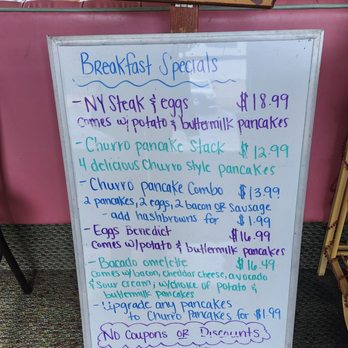 Breakfast Specials
- NY Steak & eggs $18.99
comes w/ potato & buttermilk pancakes
- Churro pancake Stack $12.99
4 delicious Churro style pancakes
- Churro pancake Combo $13.99
2 pancakes, 2 eggs, 2 bacon OR Sausage
- add hashbrowns for $1.99
- Eggs Benedict $16.99
comes w/potato & buttermilk pancakes
- Bacado omelette $16.49
comes w/bacon, cheddar cheese, avocado
& Sour cream, w/choice of potato &
buttermilk pancakes
- Upgrade any pancakes
to Churro Pancakes for $1.99
NO Coupons OR Discounts